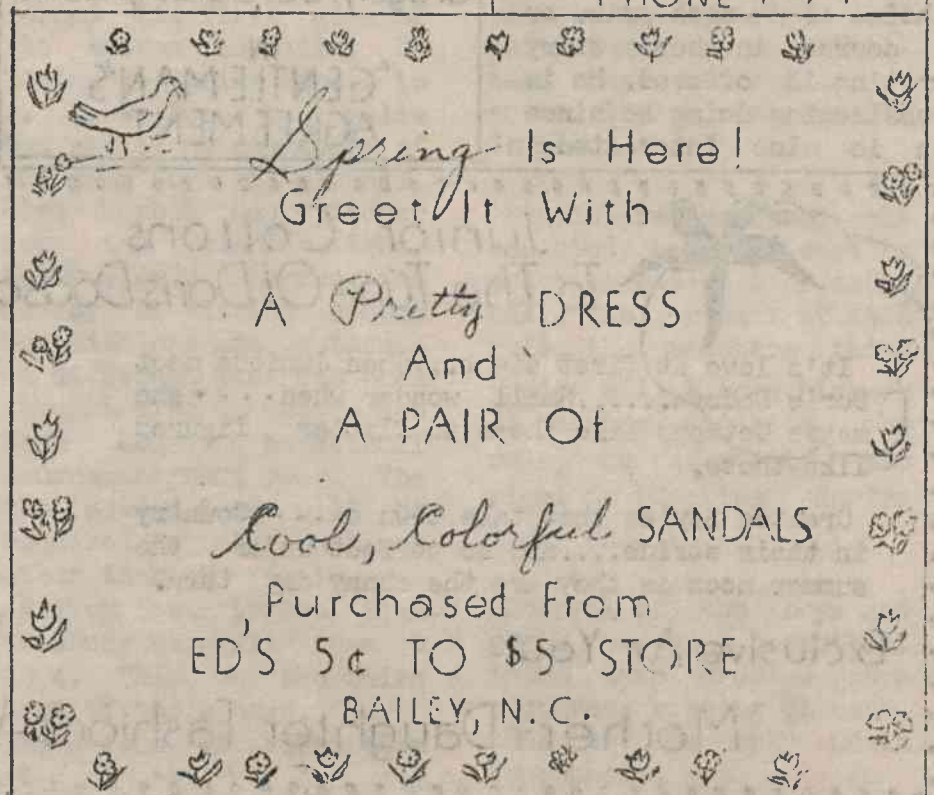 PHONE
Spring Is Here!
Greet It With
A Pretty DRESS
And
A PAIR Of
Cool, Colorful SANDALS
Purchased From
ED'S 5¢ TO $5 STORE
BAILEY, N.C.